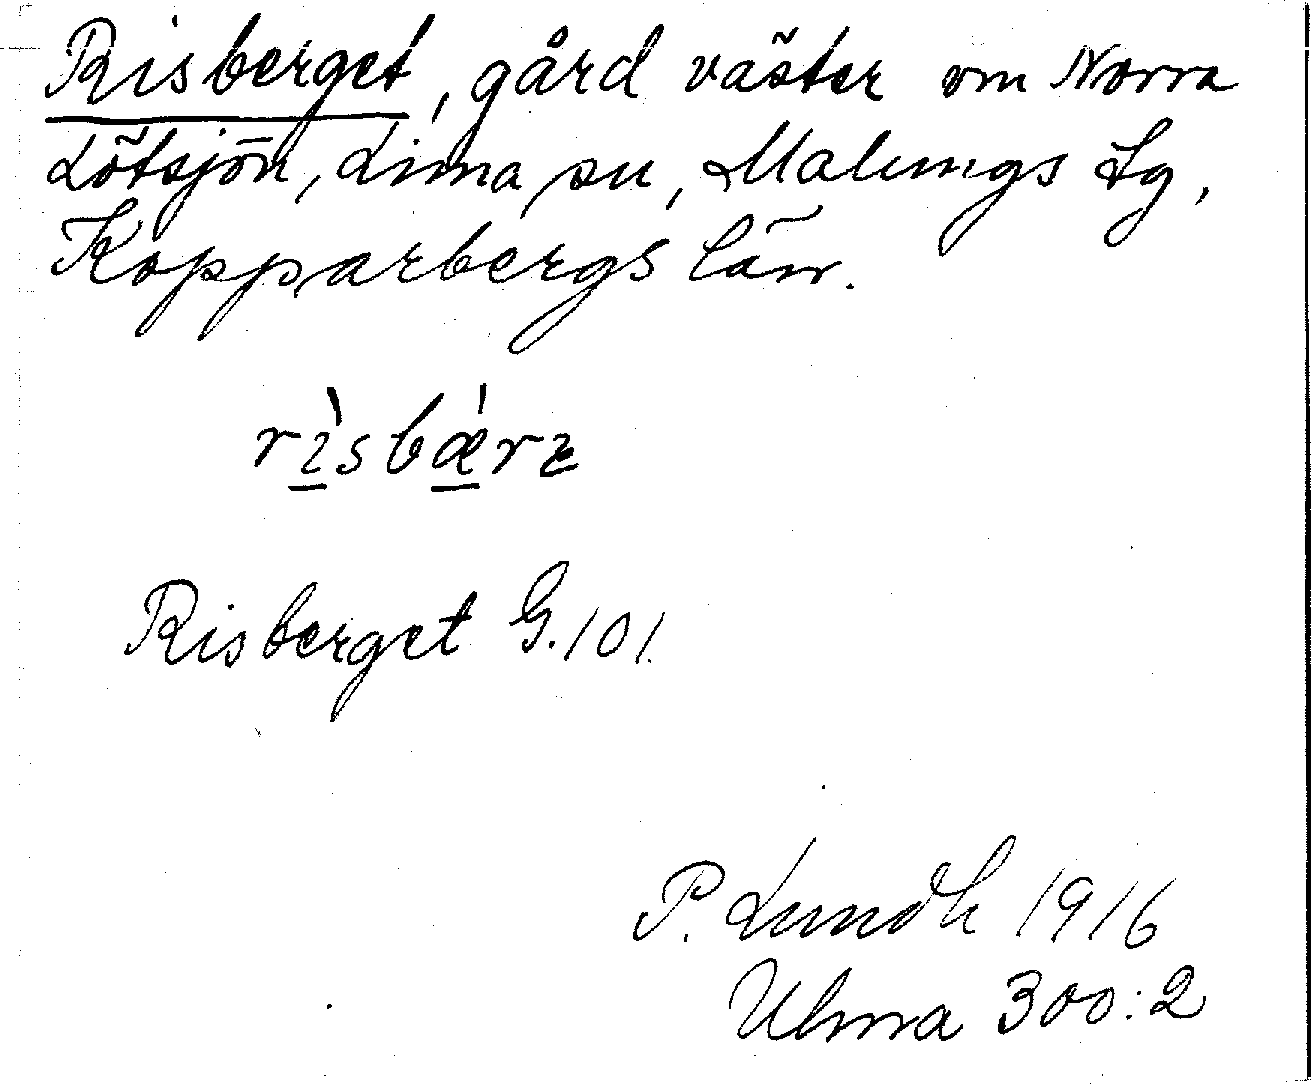 Risberget, gård väster om Norra
Lötsjön, Lima sn, Malungs tg,
Kopparbergs län.
rìsbǽrɛ
Risberget G. 101.
P. Lundh 1916
Ulma 300:2